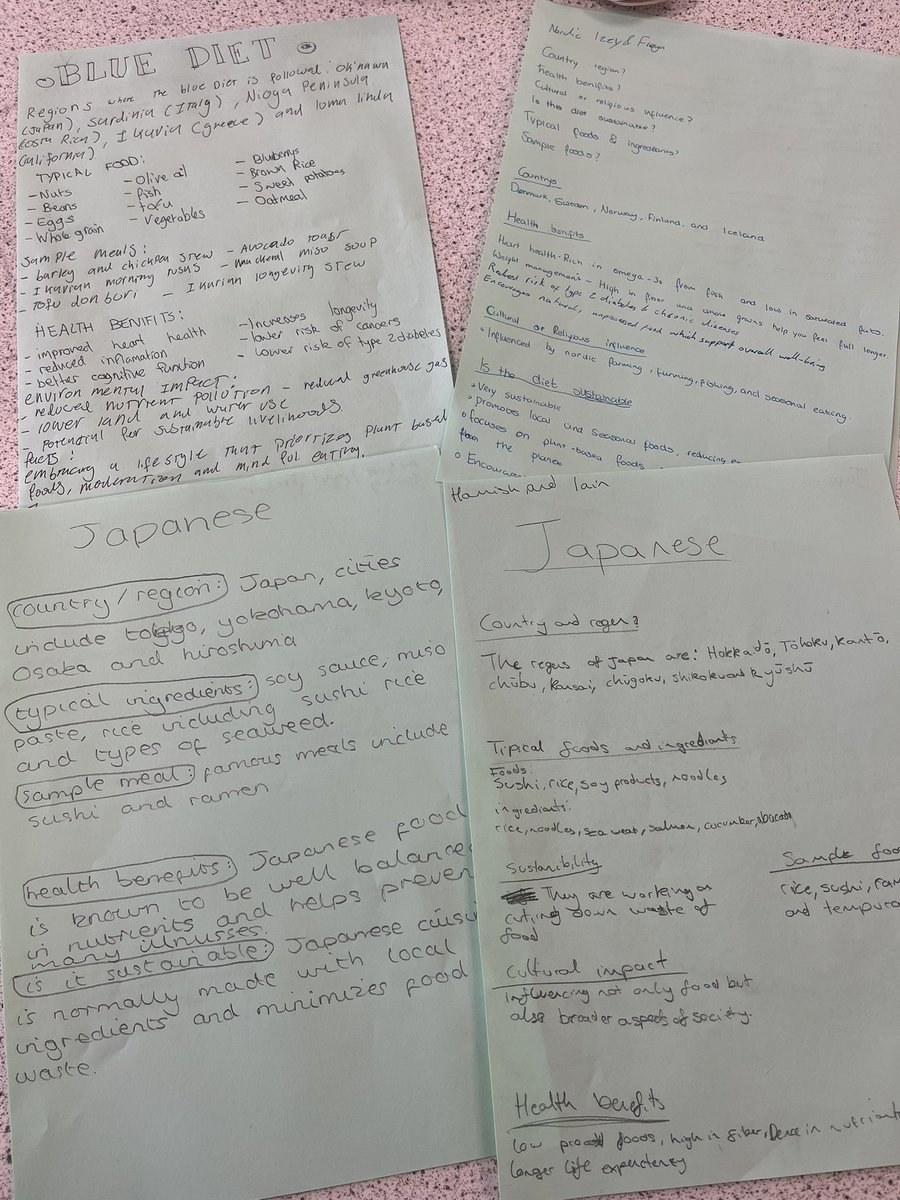 BLUE DIET
Regions where the blue Diet is followed: Okinawa
(Japan), Sardinia (Italy), Nioya Peninsula
(costa Rica), Ikaria (greece) and loma linda
(california)
TYPICAL FOOD:
- Nuts
- Beans
- Eggs
- Whole grain
- Olive oil
- fish
- tofu
- Vegetables
- Bluberrys
- Brown Rice
- Sweet potatoes
- Oatmeal
Sample meals:
- barley and chickpea stew - Avocado toast
- Ikarian morning miso soup
- Tofu donburi - Ikarian longevity stew
HEALTH BENIFITS:
- improved heart health
- reduced inflamation
- better cognitive function
- Increases longevity
- lower risk of cancers
- Lower risk of type 2 diabetes
environmental impact:
- reduced nutrient pollution - reduced greenhouse gas
- lower land and water use
- potential for sustainable livelihoods
facts:
embracing a lifestyle that prioritizes plant based
foods, moderation and mindful eating.
Nordic Izzy & Freya
Country region?
Health benifits?
Cultural or religious influence?
Is this diet sustainable?
Typical foods & ingredients?
Sample foods?
Countrys
Denmark, Sweden, Norway, Finland, and Iceland
Health benefits
Heart health-Rich in omega-3s from fish and low in saturated fats.
Weight management - High in fiber and whole grains help you feel full longer.
Reduced risk of type 2 diabetes & chronic diseases
Encourages natural, unprocessed food which support overall well-being
Cultural or Religious influence
• Influenced by nordic farming, fishing, and seasonal eating.
Is the diet sustainable
• Very sustainable
• promotes local and seasonal foods, reducing
• focuses on plant-based foods
from the planet
• Encourage
Japanese
country/region: Japan, cities
include tokyo, yokohama, kyoto,
Osaka and hiroshima
typical ingredients: soy sauce, miso
paste, rice including sushi rice
and types of seaweed.
sample meal: famous meals include
sushi and ramen
health benefits: Japanese food
is known to be well balanced
in nutrients and helps prevent
many illnusses.
is it sustainable: Japanese cuisi
is normally made with local
ingredients and minimizes food
waste.
Hamish and Iain
Japanese
Country and regen?
The regens of Japan are: Hokkaidō, Tōhoku, Kantō,
chūbu, Kansai, chūgoku, shikoku and Kyūshū
Tipical foods and ingredients
Foods:
Sushi, rice, soy products, noodles
ingredients:
rice, noodles, sea weat, salmon, cucumber, abacato
Sustanibility
They are working on
cutting down waste of
food
Sample foo
rice, sushi, ram
and tempura
Cultural impact
influencing not only food but
also broader aspects of society.
Health benefits
low foods, high in fiber, Dence in nutrient
longer life expendency